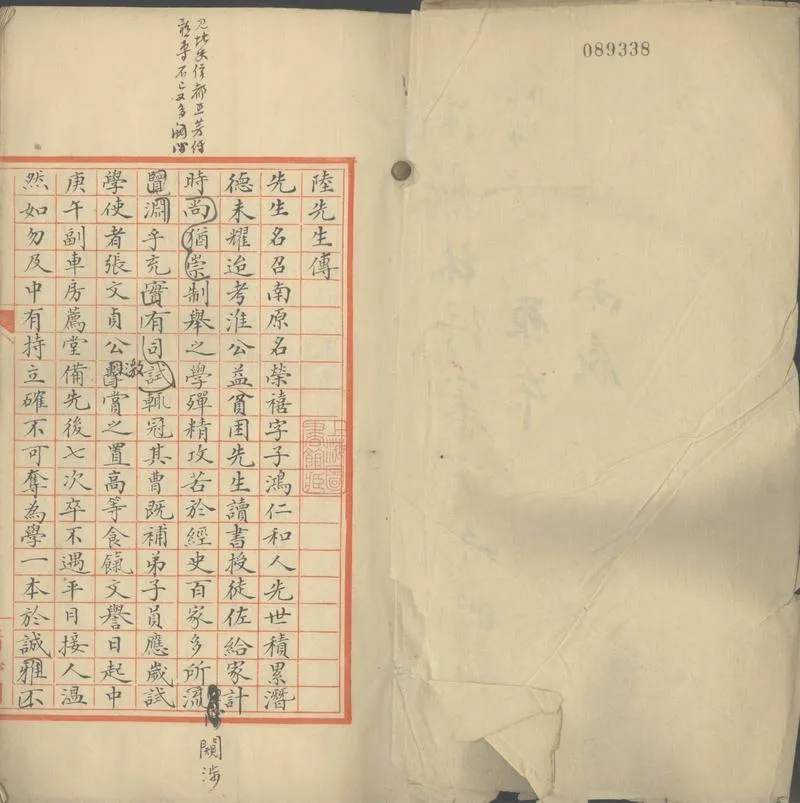 089338
陸先生傳
先生名召南原名榮禧字子鴻仁和人先世積累潛
德未耀迨考淮公益貧困先生讀書授徒佐給家計
時尚猶崇制舉之學殫精攻苦於經史百家多所流
覽淵乎充實有司試輒冠其曹既補弟子員應歲試
學使者張文貞公擊激賞之置高等食餼文譽日起中
庚午副車房薦堂備先後七次卒不遇平日接人溫
然如勿及中有持立確不可奪為學一本於誠雅不
閱涉
上海圖書館藏